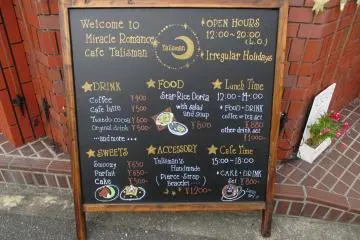 Welcome to
Miracle Romance
cafe Talisman
Talisman
OPEN HOURS
12:00~20:00
(L.O.)
Irregular Holidays
DRINK
Coffee ¥400
Cafe latte ¥500
Tuxedo cocoa ¥600
Original drink ¥500
...and more...
FOOD
Star Rice Doria
with salad
and soup
¥800
Lunch Time
12:00~14:00
FOOD + DRINK
coffee or tea set
¥880
other drink set
¥1000~
SWEETS
Smoozy ¥650
Parfait ¥650
Cake ¥500~
ACCESSORY
Talisman's
Handmade
(Pierce · Strap
Bracelet)
¥1200~
Cafe Time
15:00~18:00
CAKE + DRINK
Set ¥800~